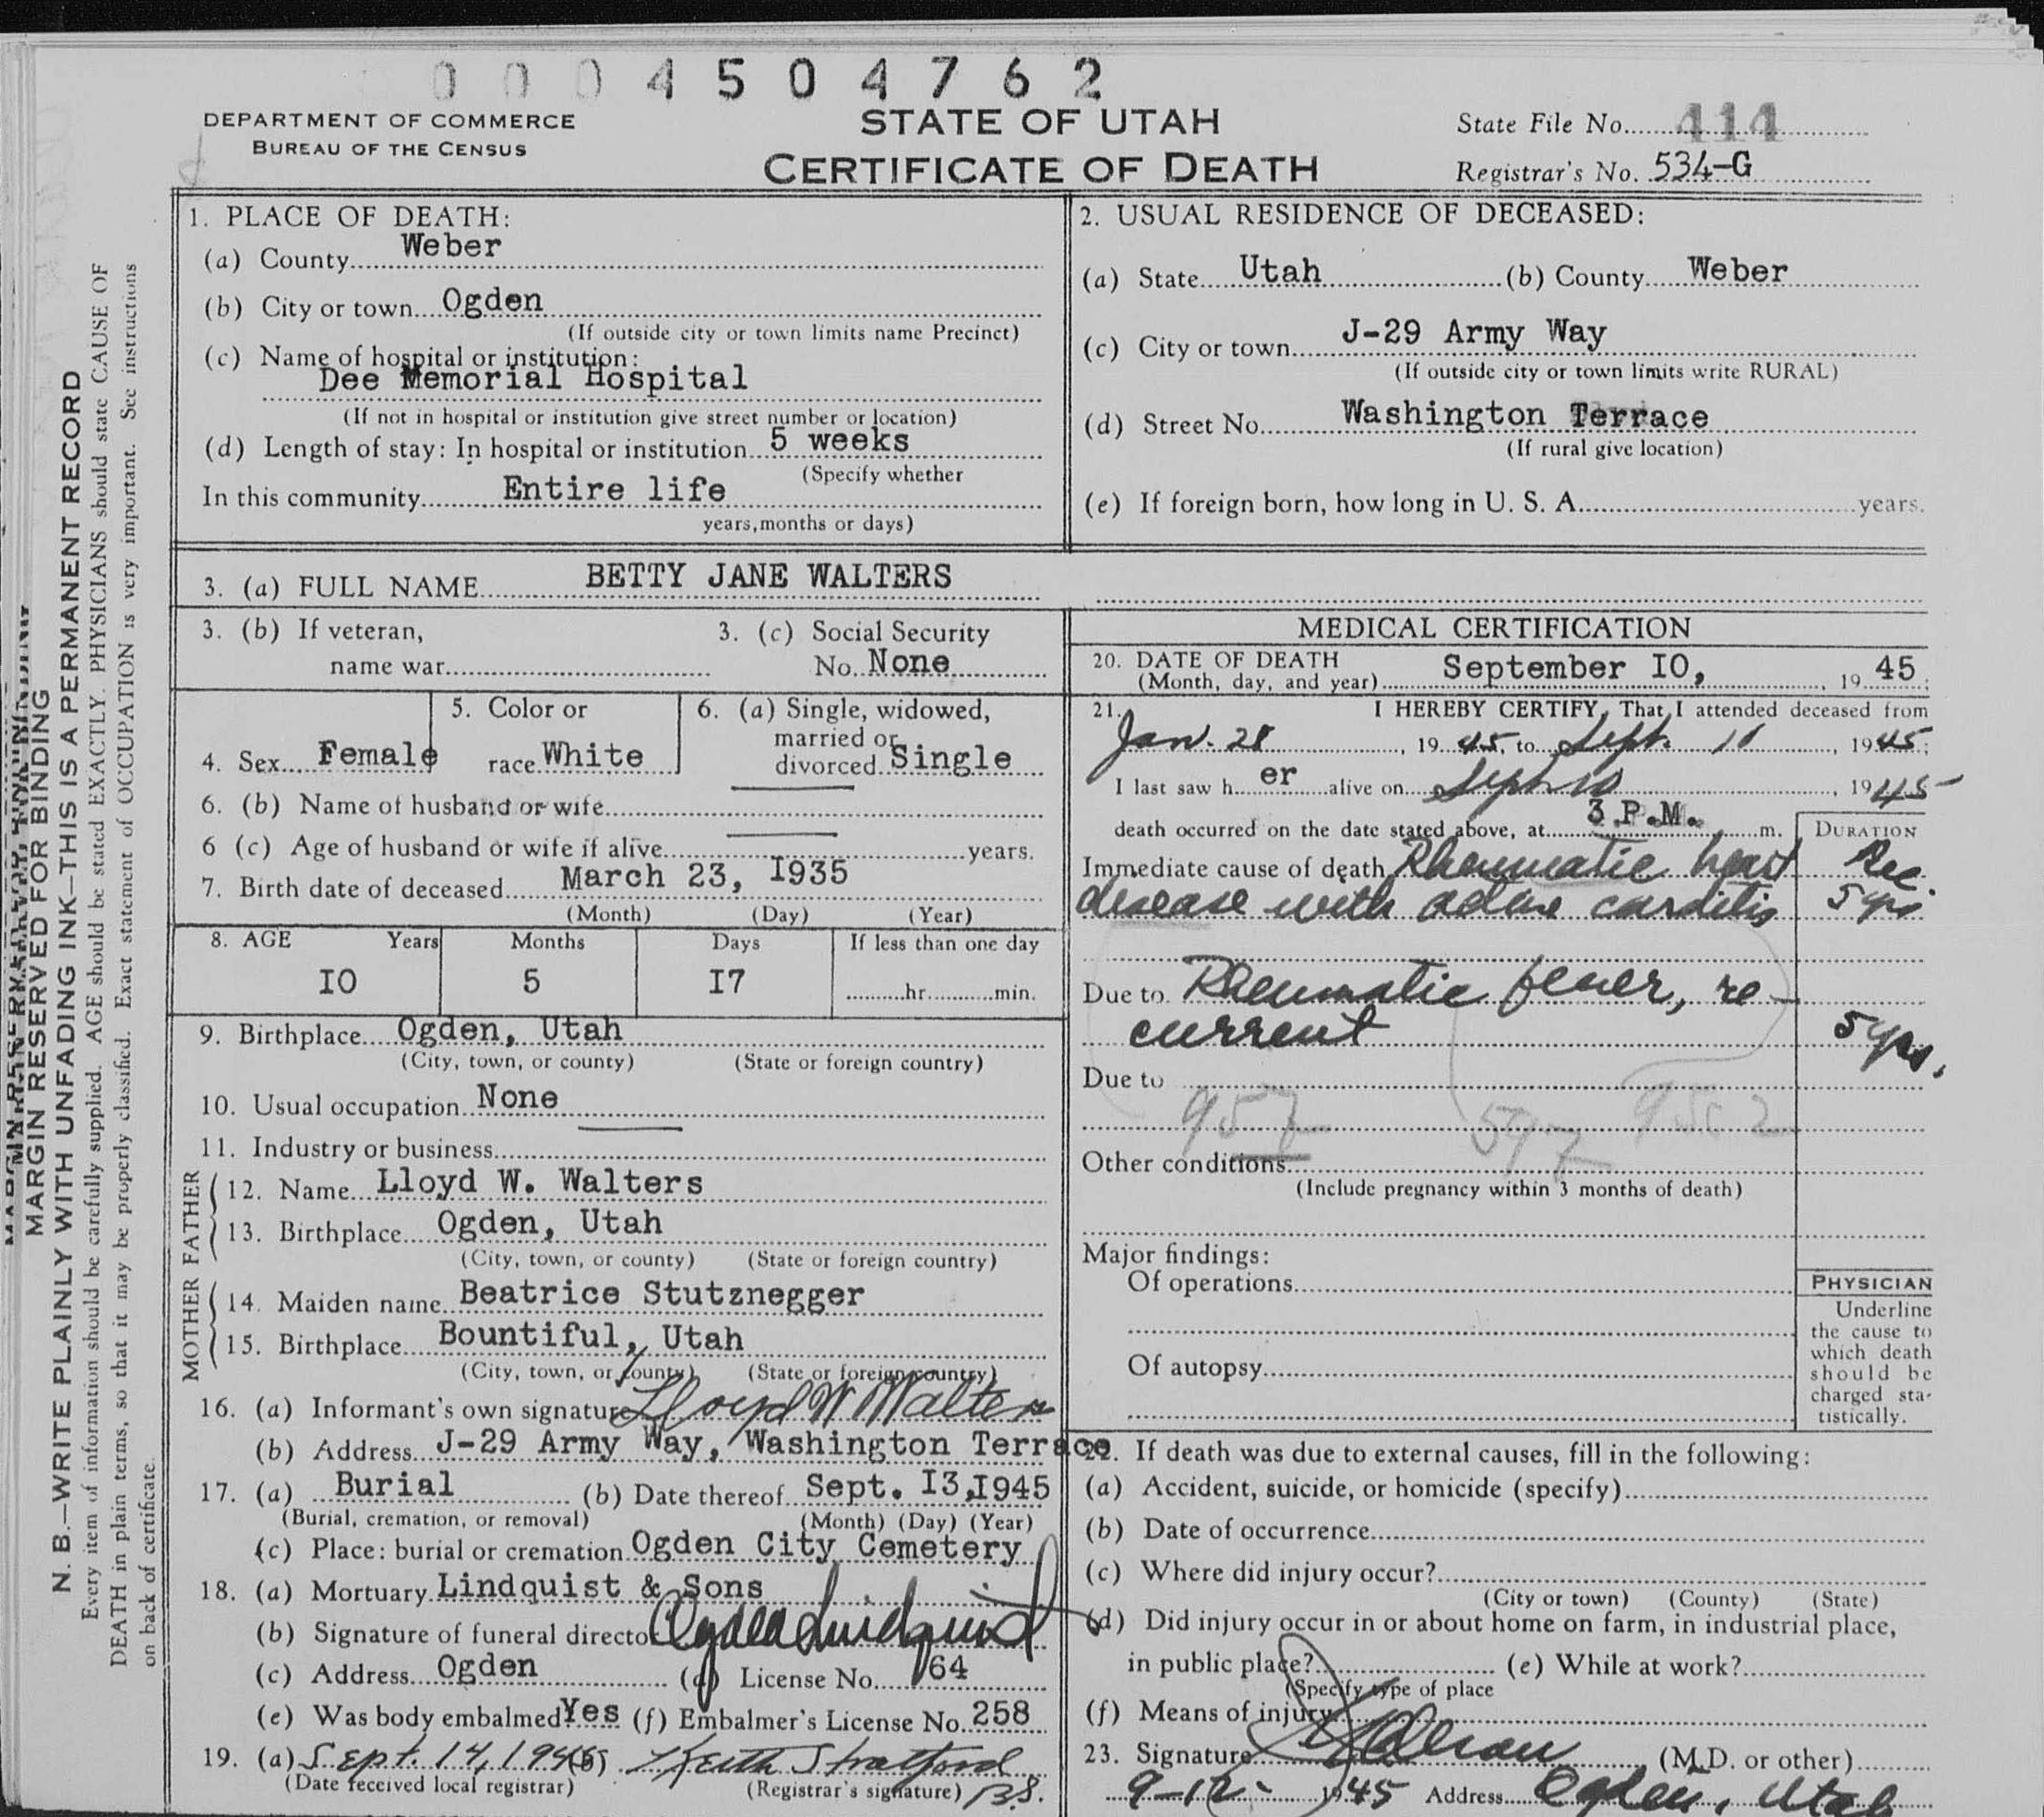 0004504762
DEPARTMENT OF COMMERCE
BUREAU OF THE CENSUS
STATE OF UTAH
CERTIFICATE OF DEATH
State File No. 414
Registrar's No. 534-G
MARGIN RESERVED FOR BINDING
N. B.—WRITE PLAINLY WITH UNFADING INK—THIS IS A PERMANENT RECORD
Every item of information should be carefully supplied. AGE should be stated EXACTLY. PHYSICIANS should state CAUSE OF
DEATH in plain terms, so that it may be properly classified. Exact statement of OCCUPATION is very important. See instructions
on back of certificate.
1. PLACE OF DEATH:
(a) County Weber
(b) City or town Ogden
(If outside city or town limits name Precinct)
(c) Name of hospital or institution:
Dee Memorial Hospital
(If not in hospital or institution give street number or location)
(d) Length of stay: In hospital or institution 5 weeks
(Specify whether
In this community Entire life
years, months or days)
2. USUAL RESIDENCE OF DECEASED:
(a) State Utah (b) County Weber
(c) City or town J-29 Army Way
(If outside city or town limits write RURAL)
(d) Street No. Washington Terrace
(If rural give location)
(e) If foreign born, how long in U. S. A. years.
3. (a) FULL NAME BETTY JANE WALTERS
3. (b) If veteran,
name war
3. (c) Social Security
No. None
4. Sex Female
5. Color or
race White
6. (a) Single, widowed,
married or
divorced Single
6. (b) Name of husband or wife
6 (c) Age of husband or wife if alive years.
7. Birth date of deceased March 23, I935
(Month) (Day) (Year)
8. AGE Years Months Days If less than one day
IO 5 I7 hr. min.
9. Birthplace Ogden, Utah
(City, town, or county) (State or foreign country)
10. Usual occupation None
11. Industry or business
FATHER
12. Name Lloyd W. Walters
13. Birthplace Ogden, Utah
(City, town, or county) (State or foreign country)
MOTHER
14. Maiden name Beatrice Stutznegger
15. Birthplace Bountiful, Utah
(City, town, or county) (State or foreign country)
16. (a) Informant's own signature Lloyd W Walters
(b) Address J-29 Army Way, Washington Terrace
17. (a) Burial (b) Date thereof Sept. I3,I945
(Burial, cremation, or removal) (Month) (Day) (Year)
(c) Place: burial or cremation Ogden City Cemetery
18. (a) Mortuary Lindquist & Sons
(b) Signature of funeral director Lindquist
(c) Address Ogden (d) License No. 64
(e) Was body embalmed? Yes (f) Embalmer's License No. 258
19. (a) Sept. 14, 1945 (b) Keith Stratford
(Date received local registrar) (Registrar's signature) B.S.
MEDICAL CERTIFICATION
20. DATE OF DEATH
(Month, day, and year) September IO, 19 45
21. I HEREBY CERTIFY, That I attended deceased from
Jan. 28, 19 45, to Sept. 10, 19 45;
I last saw h er alive on Sept 10, 19 45
death occurred on the date stated above, at 3 P.M. m.
DURATION
Immediate cause of death Rheumatic heart Rec.
disease with active carditis 5 yrs
Due to Rheumatic fever, re-
current 5 yrs.
Due to
957 597 9502
Other conditions
(Include pregnancy within 3 months of death)
Major findings:
Of operations
Of autopsy
PHYSICIAN
Underline
the cause to
which death
should be
charged sta-
tistically.
22. If death was due to external causes, fill in the following:
(a) Accident, suicide, or homicide (specify)
(b) Date of occurrence
(c) Where did injury occur?
(City or town) (County) (State)
(d) Did injury occur in or about home on farm, in industrial place,
in public place? (e) While at work?
(Specify type of place
(f) Means of injury
23. Signature (M.D. or other)
9-12- 1945 Address Ogden, Utah